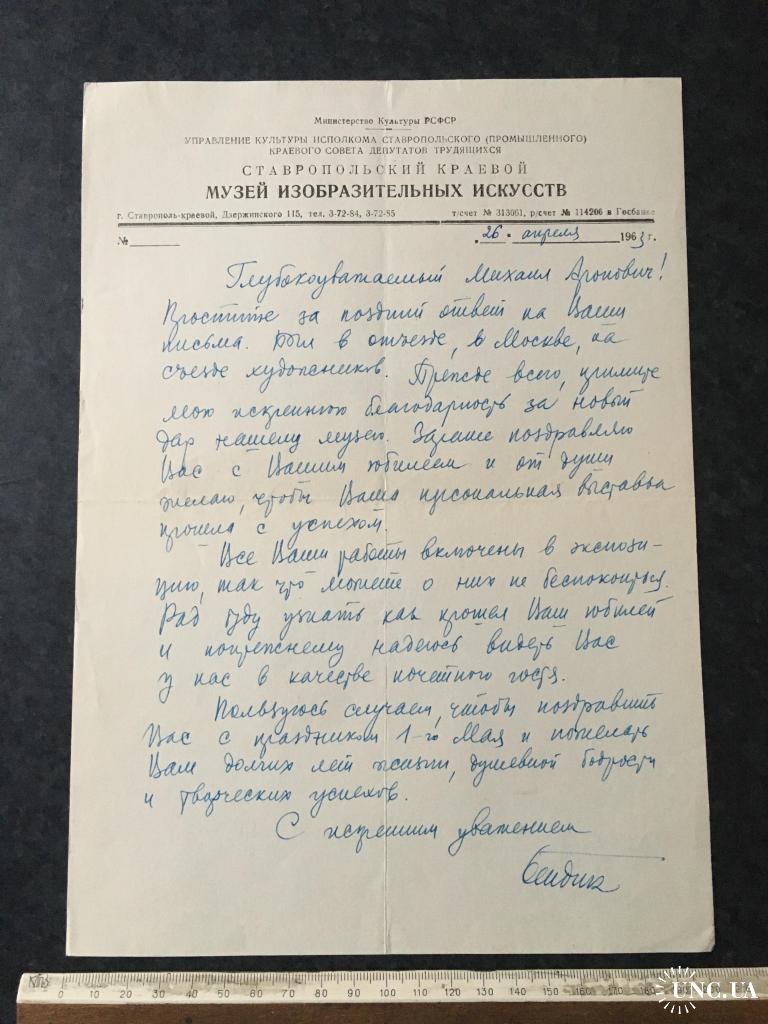 Министерство Культуры РСФСР
УПРАВЛЕНИЕ КУЛЬТУРЫ ИСПОЛКОМА СТАВРОПОЛЬСКОГО (ПРОМЫШЛЕННОГО)
КРАЕВОГО СОВЕТА ДЕПУТАТОВ ТРУДЯЩИХСЯ
СТАВРОПОЛЬСКИЙ КРАЕВОЙ
МУЗЕЙ ИЗОБРАЗИТЕЛЬНЫХ ИСКУССТВ
г. Ставрополь-краевой, Дзержинского 115, тел. 3-72-84, 3-72-85 т/счет № 313061, р/счет № 114206 в Госбанке
№ „26“ апреля 1963 г.
Глубокоуважаемый Михаил Аронович!
Простите за поздний ответ на Ваши
письма. Был в отъезде, в Москве, на
съезде художников. Прежде всего, примите
мою искреннюю благодарность за новый
дар нашему музею. Заранее поздравляю
Вас с Вашим юбилеем и от души
желаю, чтобы Ваша персональная выставка
прошла с успехом.
Все Ваши работы включены в экспози-
цию, так что можете о них не беспокоиться.
Рад буду узнать как прошел Ваш юбилей
и попрежнему надеюсь видеть Вас
у нас в качестве почетного гостя.
Пользуюсь случаем, чтобы поздравить
Вас с праздником 1-го Мая и пожелать
Вам долгих лет жизни, душевной бодрости
и творческих успехов.
С искренним уважением
0 10 20 30 40 50 60 70 80 90 100 110 120 130 140 150 160 170 180 190
UNC.UA